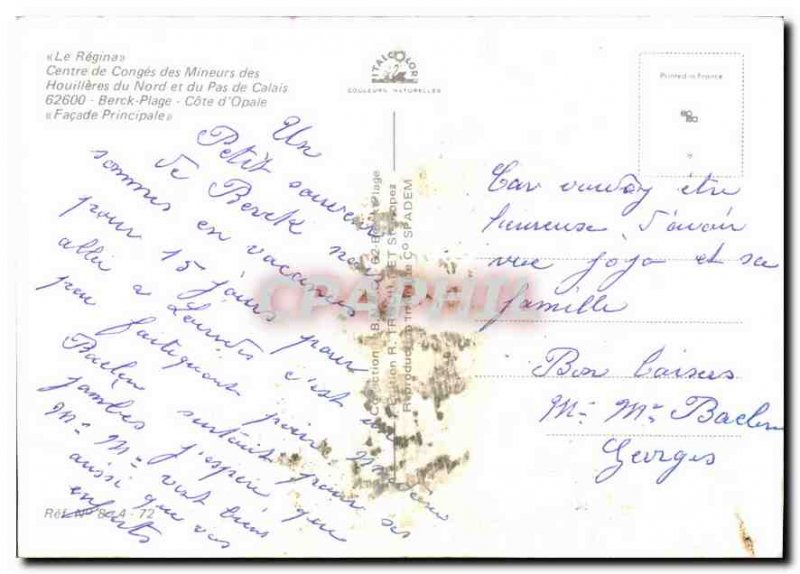 «Le Régina»
Centre de Congés des Mineurs des
Houillères du Nord et du Pas de Calais
62600 - Berck-Plage - Côte d'Opale
«Façade Principale»
ITALCOLOR
COULEURS NATURELLES
Printed in France
Un
Petit souvenir
de Berck nous
sommes en vacances
pour 15 jours pour
allée a Lourdes c'est un
peu fatiguant pour Monsieur
Baclen surtout pour ses
jambes j'espère que
Mr Mm vont bien
aussi que vos
enfants
Réf. N° 72
62-Berck-Plage
Reproduction SPADEM
CPAPHIL
Car vous être
heureuse d'avoir
vue jojo et sa
famille
Bon baisers
Mr Mm Baclen
Georges